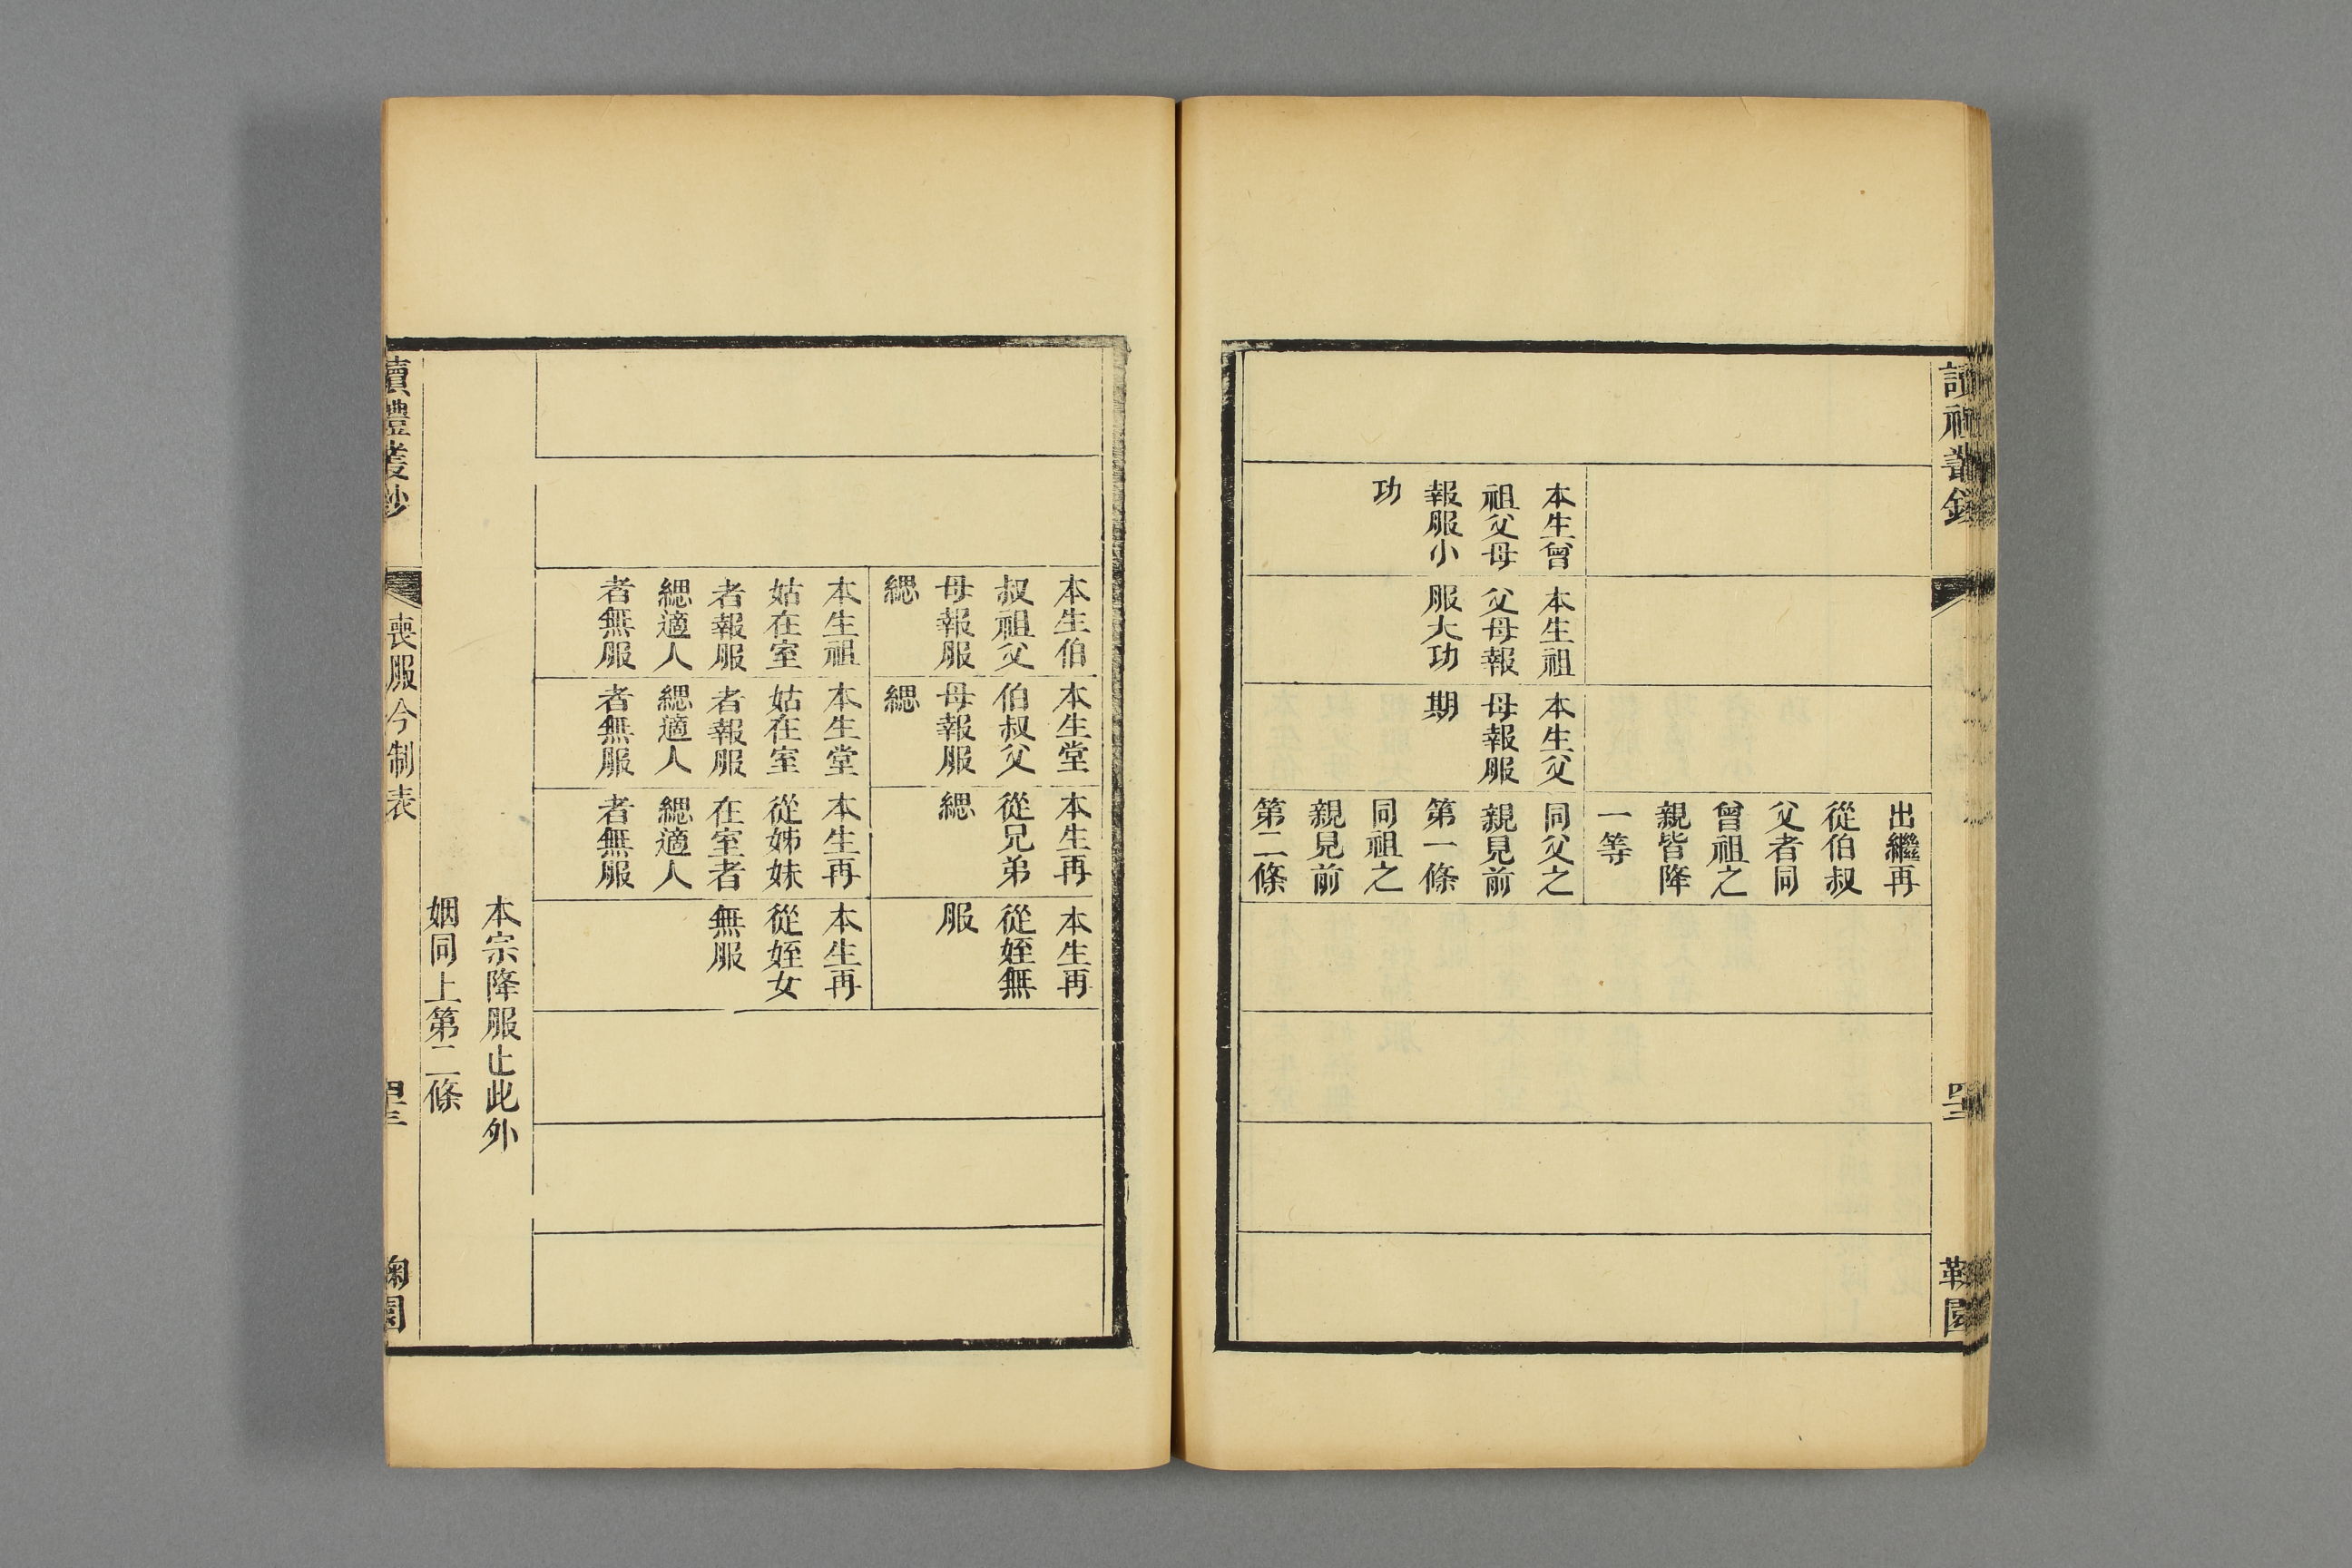 出繼再
從伯叔
父者同
曾祖之
親皆降
一等
本生曾
祖父母
報服小
功
本生祖
父母報
服大功
本生父
母報服
期
同父之
親見前
第一條
同祖之
親見前
第二條
本生伯
叔祖父
母報服
緦
本生堂
伯叔父
母報服
緦
本生再
從兄弟
緦
本生再
從姪無
服
本生祖
姑在室
者報服
緦適人
者無服
本生堂
姑在室
者報服
緦適人
者無服
本生再
從姊妹
在室者
緦適人
者無服
本生再
從姪女
無服
本宗降服止此外
姻同上第二條
讀禮叢鈔
喪服今制表